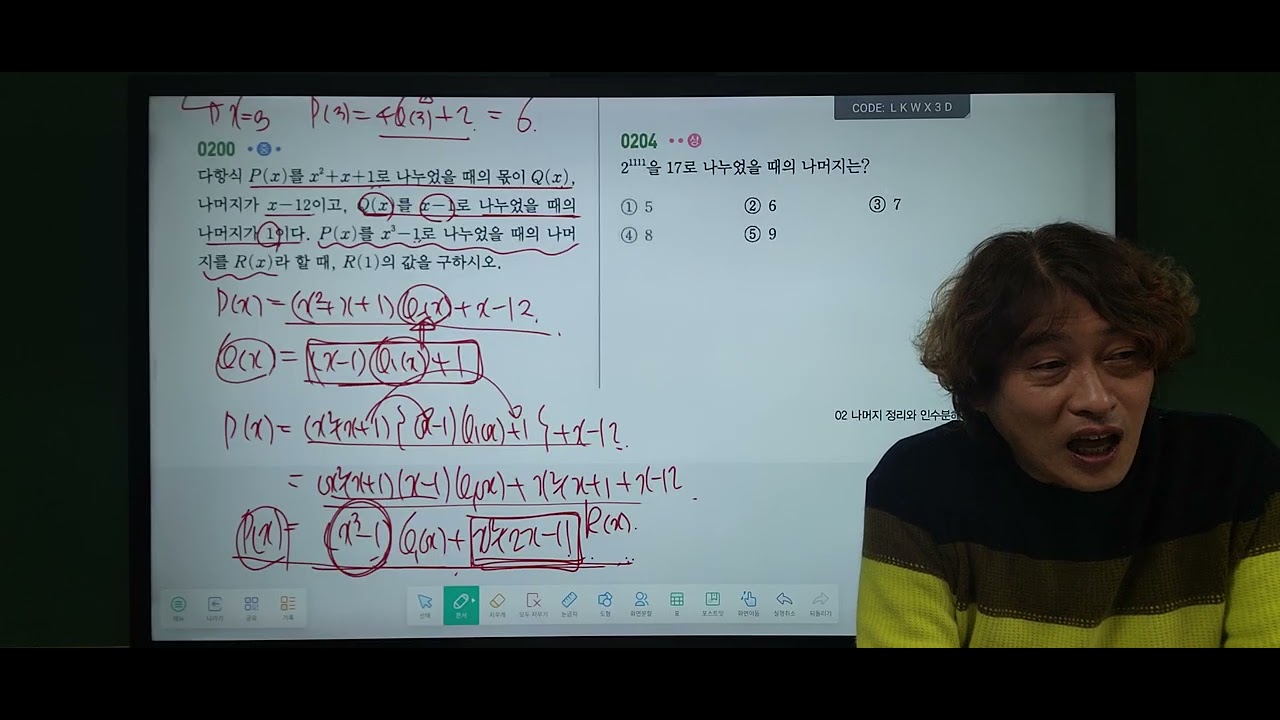 x=3 P(3)=4Q(3)+2 = 6.
0200 중
다항식 P(x)를 x²+x+1로 나누었을 때의 몫이 Q(x),
나머지가 x-12이고, Q(x)를 x-1로 나누었을 때의
나머지가 1이다. P(x)를 x³-1로 나누었을 때의 나머
지를 R(x)라 할 때, R(1)의 값을 구하시오.
P(x)=(x²+x+1)Q(x)+x-12.
Q(x) = (x-1)Q₁(x)+1
P(x)=(x²+x+1){(x-1)Q₁(x)+1}+x-12.
= (x²+x+1)(x-1)Q₁(x)+x²+x+1+x-12.
P(x)= (x³-1)Q₁(x)+x²+2x-11 R(x).
CODE: L K W X 3 D
0204 상
2¹¹¹¹을 17로 나누었을 때의 나머지는?
① 5 ② 6 ③ 7
④ 8 ⑤ 9
02 나머지 정리와 인수분해
메뉴 나가기 공유 기록 선택 판서 지우개 모두 지우기 눈금자 도형 화면분할 표 포스트잇 화면이동 실행취소 되돌리기